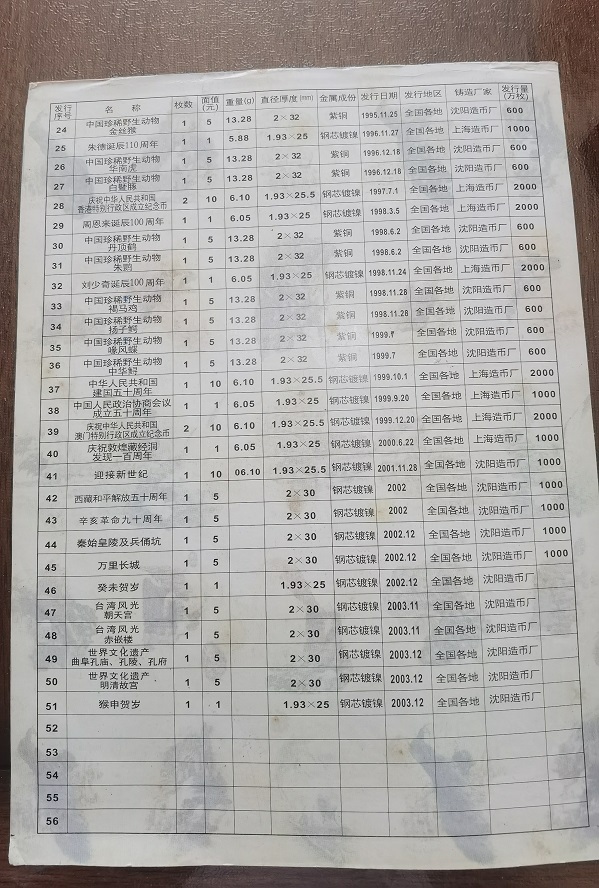 发行序号 名称 枚数 面值(元) 重量(g) 直径厚度(mm) 金属成份 发行日期 发行地区 铸造厂家 发行量(万枚)
24 中国珍稀野生动物 金丝猴 1 5 13.28 2×32 紫铜 1995.11.25 全国各地 沈阳造币厂 600
25 朱德诞辰110周年 1 1 5.88 1.93×25 钢芯镀镍 1996.11.27 全国各地 上海造币厂 1000
26 中国珍稀野生动物 华南虎 1 5 13.28 2×32 紫铜 1996.12.18 全国各地 沈阳造币厂 600
27 中国珍稀野生动物 白暨豚 1 5 13.28 2×32 紫铜 1996.12.18 全国各地 沈阳造币厂 600
28 庆祝中华人民共和国 香港特别行政区成立纪念币 2 10 6.10 1.93×25.5 钢芯镀镍 1997.7.1 全国各地 上海造币厂 2000
29 周恩来诞辰100周年 1 1 6.05 1.93×25 钢芯镀镍 1998.3.5 全国各地 上海造币厂 2000
30 中国珍稀野生动物 丹顶鹤 1 5 13.28 2×32 紫铜 1998.6.2 全国各地 沈阳造币厂 600
31 中国珍稀野生动物 朱鹮 1 5 13.28 2×32 紫铜 1998.6.2 全国各地 沈阳造币厂 600
32 刘少奇诞辰100周年 1 1 6.05 1.93×25 钢芯镀镍 1998.11.24 全国各地 上海造币厂 2000
33 中国珍稀野生动物 褐马鸡 1 5 13.28 2×32 紫铜 1998.11.28 全国各地 沈阳造币厂 600
34 中国珍稀野生动物 扬子鳄 1 5 13.28 2×32 紫铜 1998.11.28 全国各地 沈阳造币厂 600
35 中国珍稀野生动物 喙凤蝶 1 5 13.28 2×32 紫铜 1999.7 全国各地 沈阳造币厂 600
36 中国珍稀野生动物 中华鲟 1 5 13.28 2×32 紫铜 1999.7 全国各地 沈阳造币厂 600
37 中华人民共和国 建国五十周年 1 10 6.10 1.93×25.5 钢芯镀镍 1999.10.1 全国各地 上海造币厂 2000
38 中国人民政治协商会议 成立五十周年 1 1 6.05 1.93×25 钢芯镀镍 1999.9.20 全国各地 上海造币厂 1000
39 庆祝中华人民共和国 澳门特别行政区成立纪念币 2 10 6.10 1.93×25.5 钢芯镀镍 1999.12.20 全国各地 上海造币厂 2000
40 庆祝敦煌藏经洞 发现一百周年 1 1 6.05 1.93×25 钢芯镀镍 2000.6.22 全国各地 上海造币厂 1000
41 迎接新世纪 1 10 06.10 1.93×25.5 钢芯镀镍 2001.11.28 全国各地 沈阳造币厂 1000
42 西藏和平解放五十周年 1 5 2×30 钢芯镀镍 2002 全国各地 沈阳造币厂 1000
43 辛亥革命九十周年 1 5 2×30 钢芯镀镍 2002 全国各地 沈阳造币厂 1000
44 秦始皇陵及兵俑坑 1 5 2×30 钢芯镀镍 2002.12 全国各地 沈阳造币厂 1000
45 万里长城 1 5 2×30 钢芯镀镍 2002.12 全国各地 沈阳造币厂 1000
46 癸未贺岁 1 1 1.93×25 钢芯镀镍 2002.12 全国各地 沈阳造币厂
47 台湾风光 朝天宫 1 5 2×30 钢芯镀镍 2003.11 全国各地 沈阳造币厂
48 台湾风光 赤嵌楼 1 5 2×30 钢芯镀镍 2003.11 全国各地 沈阳造币厂
49 世界文化遗产 曲阜孔庙、孔陵、孔府 1 5 2×30 钢芯镀镍 2003.12 全国各地 沈阳造币厂
50 世界文化遗产 明清故宫 1 5 2×30 钢芯镀镍 2003.12 全国各地 沈阳造币厂
51 猴申贺岁 1 1 1.93×25 钢芯镀镍 2003.12 全国各地 沈阳造币厂
52
53
54
55
56